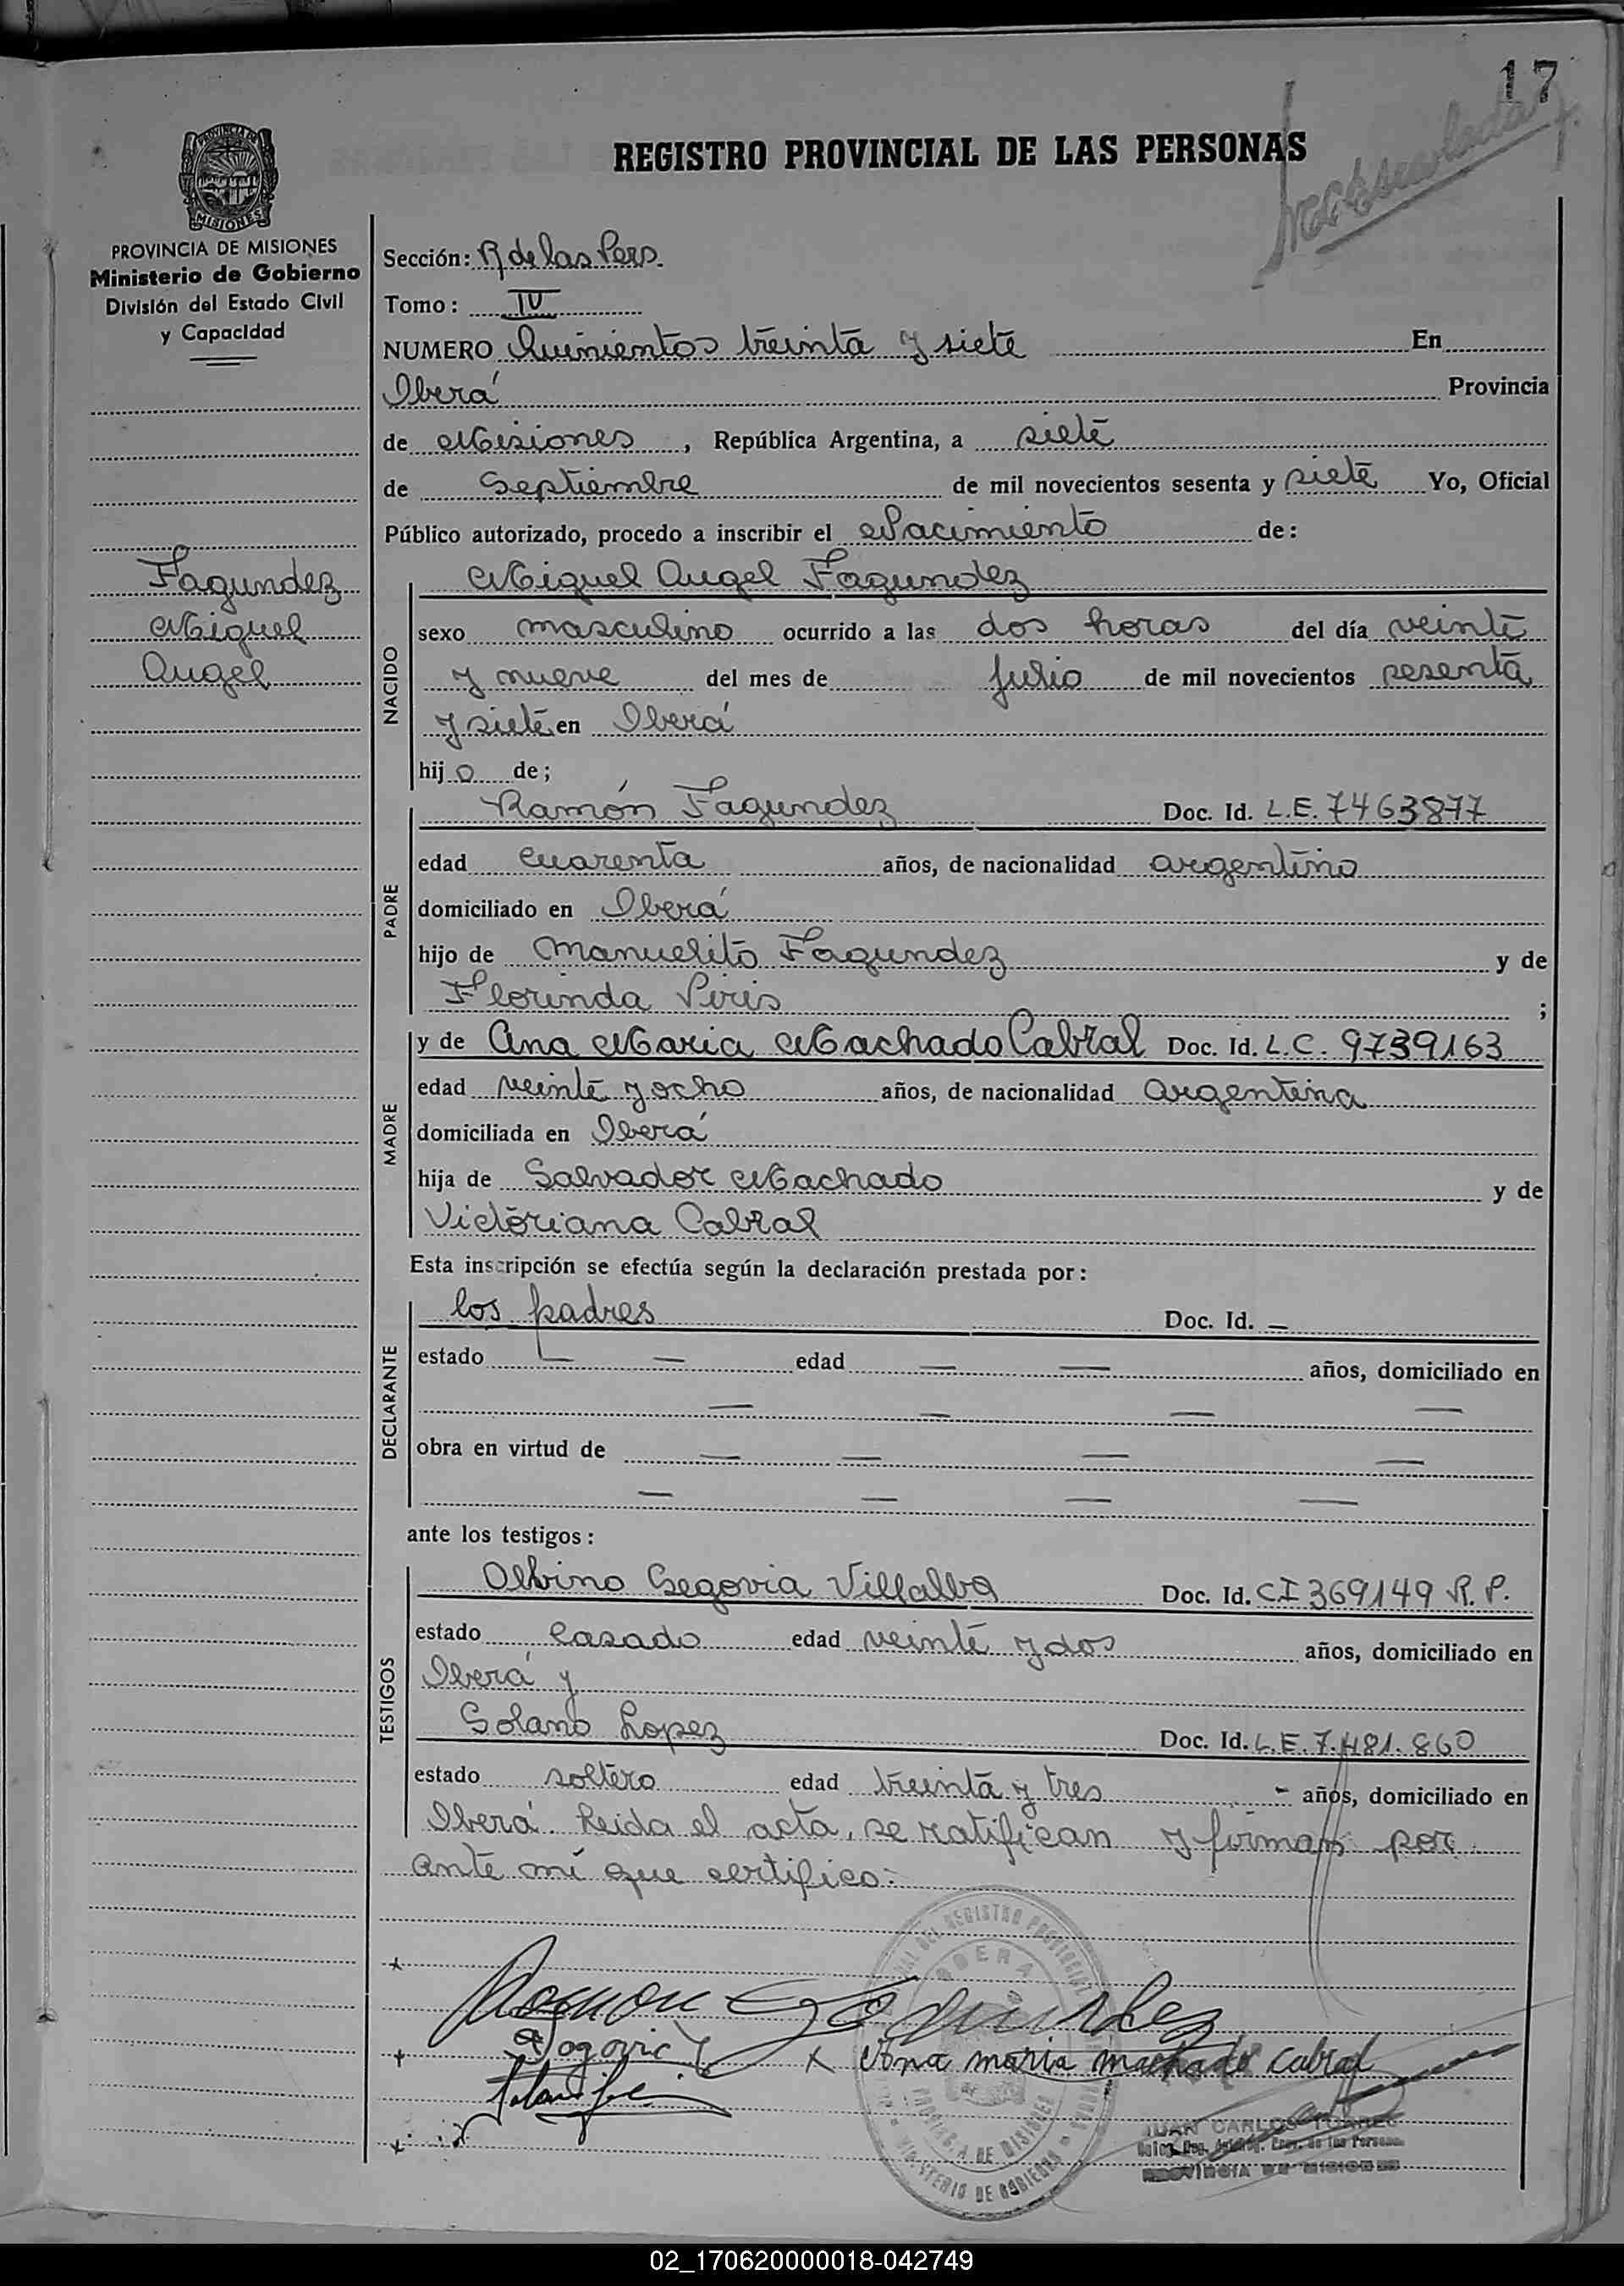 17
REGISTRO PROVINCIAL DE LAS PERSONAS
PROVINCIA DE
MISIONES
PROVINCIA DE MISIONES
Ministerio de Gobierno
División del Estado Civil
y Capacidad
Fagundez
Miguel
Angel
Sección: R de las Pers.
Tomo: IV
NUMERO Quinientos treinta y siete En
Oberá Provincia
de Misiones, República Argentina, a siete
de Septiembre de mil novecientos sesenta y siete Yo, Oficial
Público autorizado, procedo a inscribir el Nacimiento de:
NACIDO
Miguel Angel Fagundez
sexo masculino ocurrido a las dos horas del día veinte
y nueve del mes de julio de mil novecientos sesenta
y siete en Oberá
hijo de;
PADRE
Ramón Fagundez Doc. Id. L.E. 7463877
edad cuarenta años, de nacionalidad argentino
domiciliado en Oberá
hijo de Manuelito Fagundez y de
Florinda Piris ;
MADRE
y de Ana Maria Machado Cabral Doc. Id. L.C. 9739163
edad veinte y ocho años, de nacionalidad argentina
domiciliada en Oberá
hija de Salvador Machado y de
Victoriana Cabral
Esta inscripción se efectúa según la declaración prestada por:
DECLARANTE
los padres Doc. Id. —
estado — — edad — — años, domiciliado en
— — — —
obra en virtud de — — — —
— — — —
ante los testigos:
TESTIGOS
Albino Segovia Villalba Doc. Id. CI 369149 R.P.
estado casado edad veinte y dos años, domiciliado en
Oberá y
Solano Lopez Doc. Id. L.E. 7.481.860
estado soltero edad treinta y tres - años, domiciliado en
Oberá. Leida el acta, se ratifican y firman por
ante mí que certifico:-
Ramon Fagundez
x Ana maria machado cabral
DEL REGISTRO PROVINCIAL
OBERA
PROVINCIA DE MISIONES
MINISTERIO DE GOBIERNO
JUAN CARLOS
PROVINCIA DE MISIONES
02_170620000018-042749